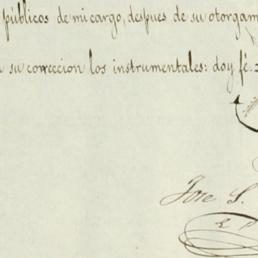 públicos de mi cargo, despues de su otorgam
su correccion los instrumentales: doy fé.
Jose S.